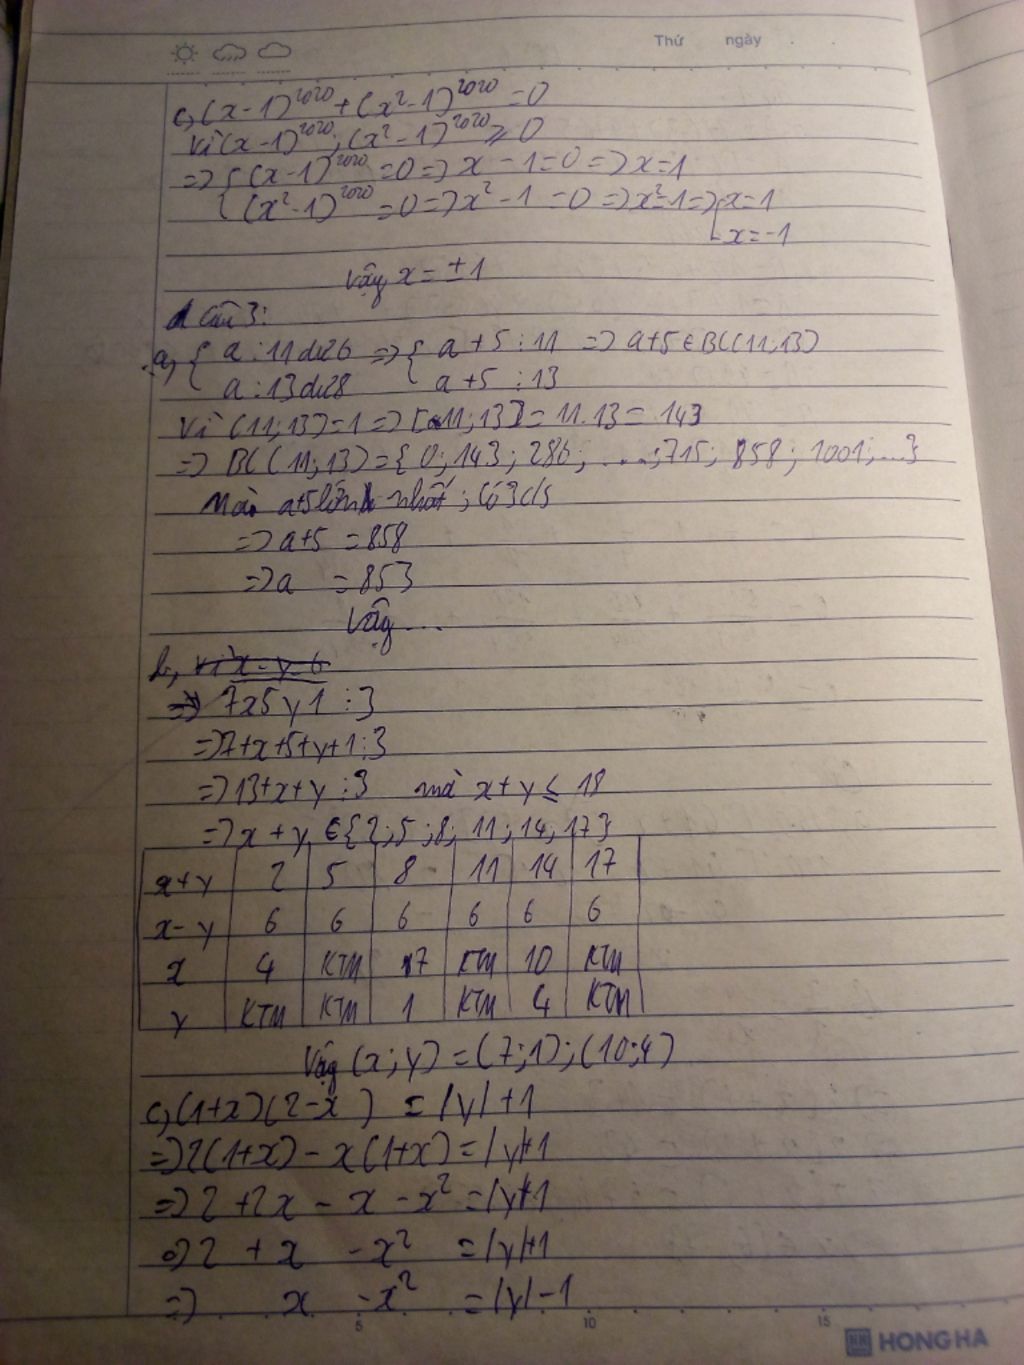 Thứ ngày
c, (x-1)²⁰²⁰ + (x²-1)²⁰²⁰ = 0
Vì (x-1)²⁰²⁰; (x²-1)²⁰²⁰ ≥ 0
=> { (x-1)²⁰²⁰ = 0 => x - 1 = 0 => x = 1
(x²-1)²⁰²⁰ = 0 => x² - 1 = 0 => x² = 1 => [ x = 1
x = -1
Vậy x = ± 1
Câu 3:
a, { a : 11 dư 6 => { a + 5 ⋮ 11 => a+5 ∈ BC(11;13)
a : 13 dư 8 a + 5 ⋮ 13
Vì (11;13) = 1 => [11;13] = 11.13 = 143
=> BC(11;13) = {0; 143; 286; ....; 715; 858; 1001; ...}
Mà a+5 lớn nhất; có 3 c/s
=> a+5 = 858
=> a = 853
Vậy ...
b, Vì x - y = 6
=> 7x5y1 ⋮ 3
=> 7+x+5+y+1 ⋮ 3
=> 13+x+y ⋮ 3 mà x+y ≤ 18
=> x + y ∈ {2; 5; 8; 11; 14; 17}
x+y 2 5 8 11 14 17
x-y 6 6 6 6 6 6
x 4 KTM 7 KTM 10 KTM
y KTM KTM 1 KTM 4 KTM
Vậy (x; y) = (7;1); (10;4)
c, (1+x)(2-x) = |y|+1
=> 2(1+x) - x(1+x) = |y|+1
=> 2 + 2x - x - x² = |y|+1
=> 2 + x - x² = |y|+1
=> x - x² = |y| - 1
5 10 15
HONG HA